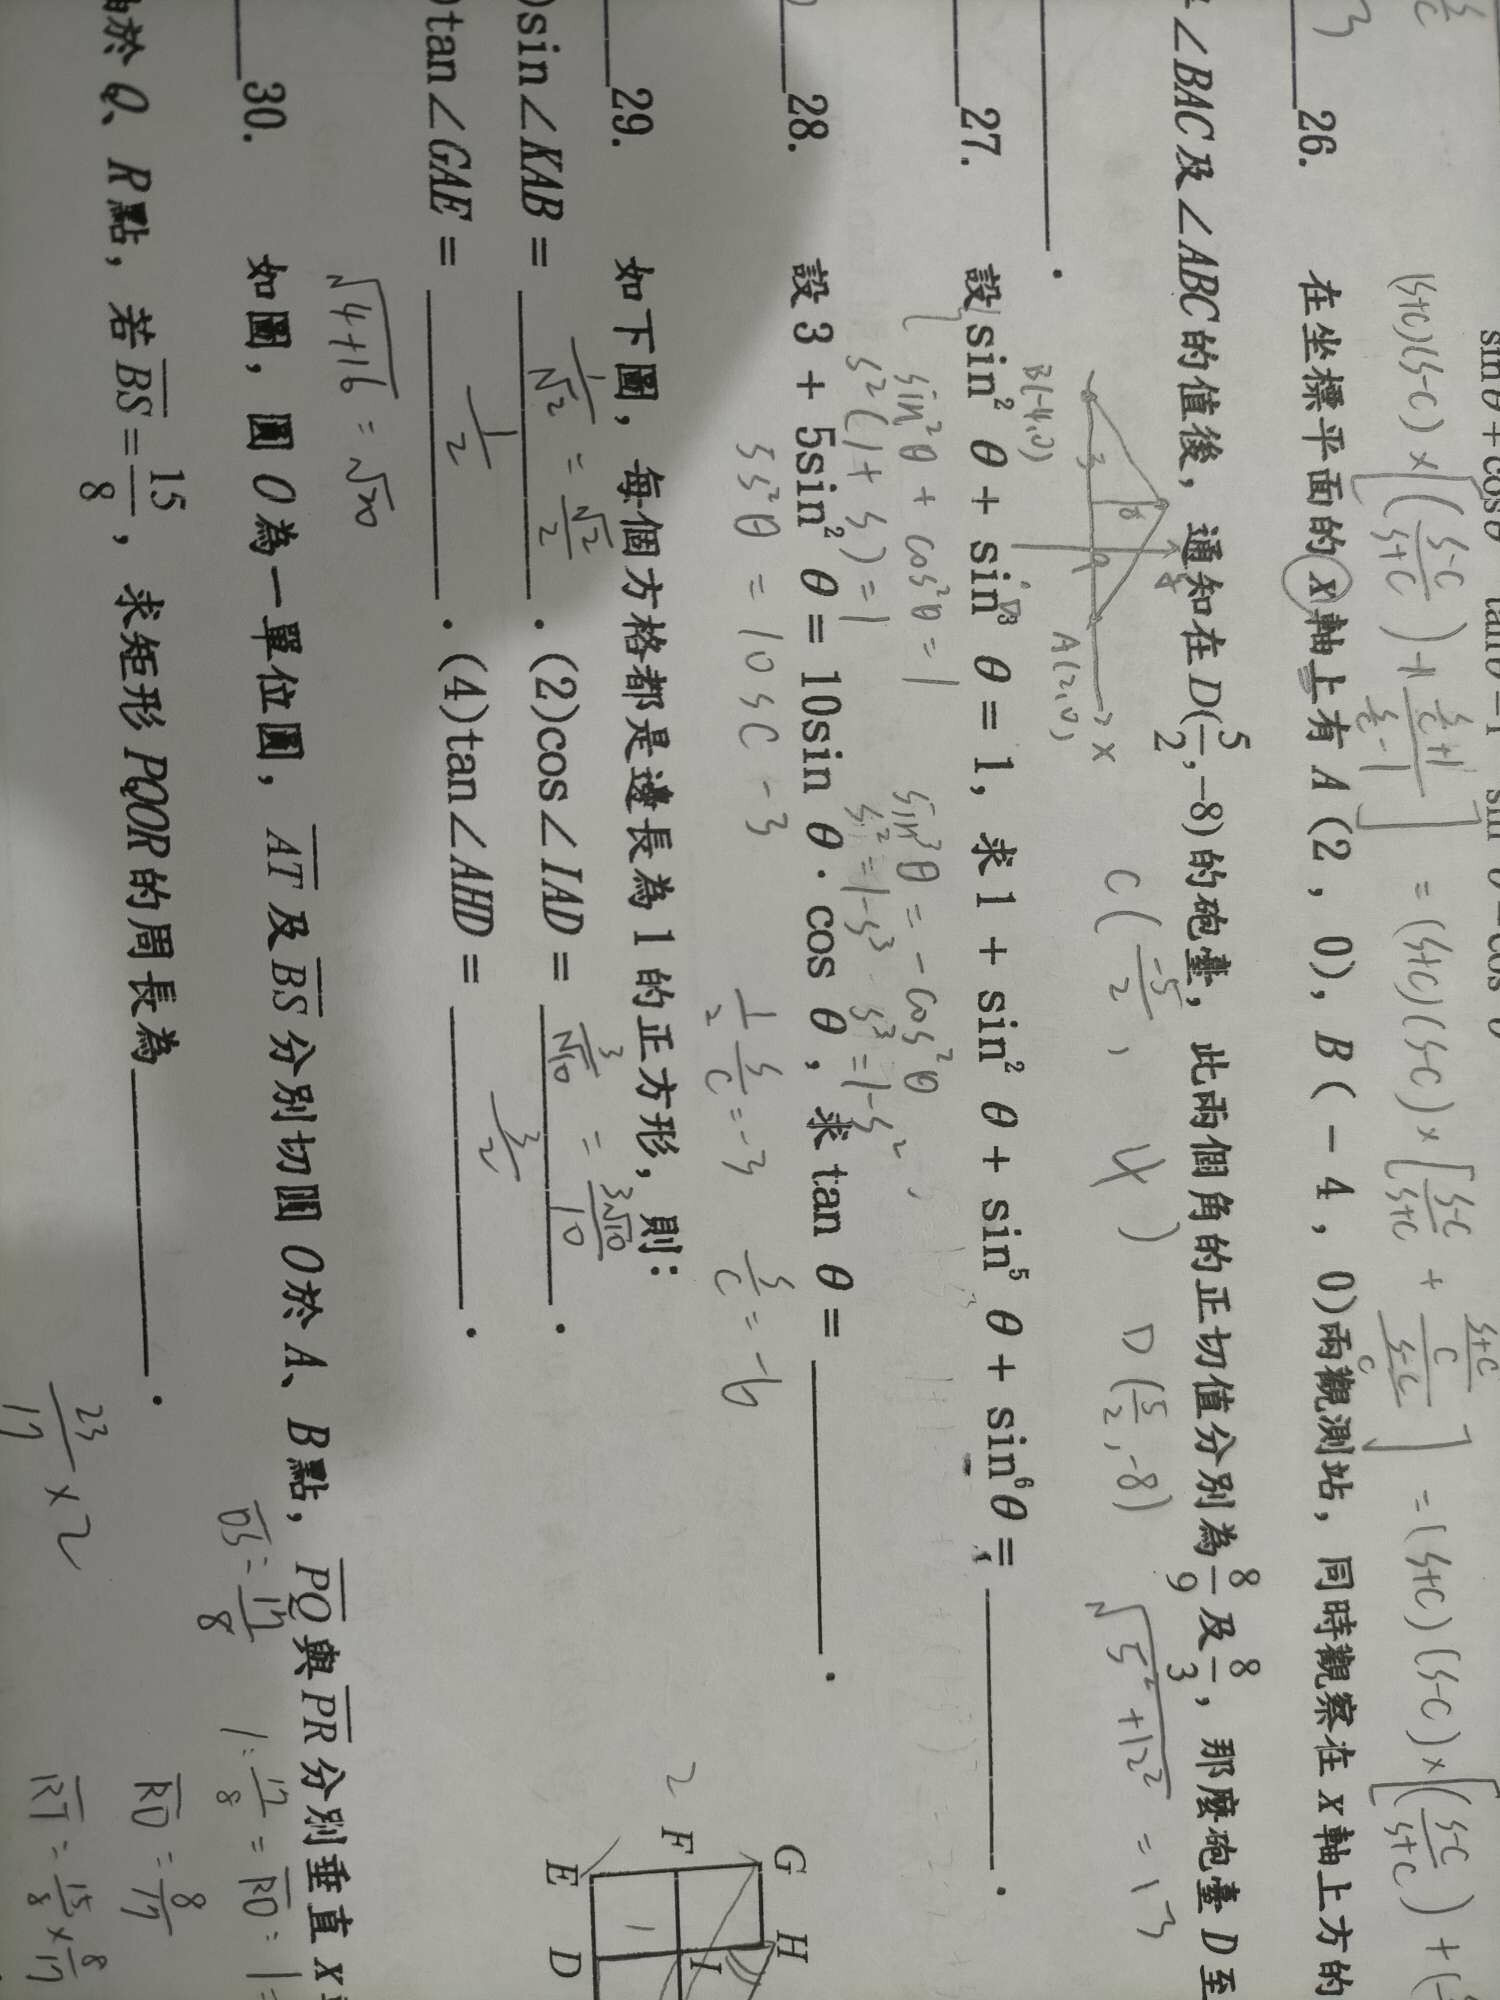 (s+c)(s-c) × [(s-c/s+c) + s/c+1 / s/c-1] = (s+c)(s-c) × [s-c/s+c + s+c/c / s-c/c] = (s+c)(s-c) × [(s-c/s+c) +
26. 在坐標平面的 x 軸上有 A (2 , 0), B ( - 4 , 0)兩觀測站, 同時觀察在 x 軸上方的
∠BAC及∠ABC的值後, 通知在D(5/2,-8)的砲臺, 此兩個角的正切值分別為8/9及8/3, 那麼砲臺 D至
.
B(-4,0) A(2,0) x C(-5/2, 4) D(5/2,-8) √5²+12² = 13
27. 設 sin² θ + sin³ θ = 1, 求 1 + sin² θ + sin⁵ θ + sin⁶θ = .
sin²θ + cos²θ = 1 sin³θ = -cos²θ
s²(1+s)=1 s²=1-s³ s³=1-s²
28. 設 3 + 5sin² θ = 10sin θ · cos θ, 求 tan θ = .
5s²θ = 10sc - 3 1/2 s/c = -3 s/c = -6
29. 如下圖, 每個方格都是邊長為 1 的正方形, 則:
)sin∠KAB = 1/√2 = √2/2 . (2)cos∠IAD = 3/√10 = 3√10/10 .
)tan∠GAE = 1/2 . (4)tan∠AHD = 3/2 .
√4+16 = √20
2 F G H E D I 1
30. 如圖, 圓 O 為一單位圓, AT 及 BS 分別切圓 O於 A、B點, PQ與PR分別垂直 x
於 Q、R點, 若BS=15/8, 求矩形 PQOR的周長為 .
OS=17/8 1:17/8 = RO:1
RO = 8/17
23/17 × 2 RT = 15/8 × 8/17